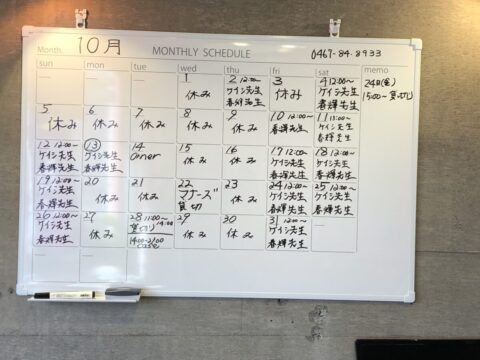 Month. 10月 MONTHLY SCHEDULE 0467-84-8933
sun mon tue wed thu fri sat memo
1 休み
2 12:00~ ケイシ先生 春輝先生
3 休み
4 12:00~ ケイシ先生 春輝先生
24日(金)
15:00~ 貸切り
5 休み
6 休み
7 休み
8 休み
9 休み
10 12:00~ 春輝先生
11 13:00~ ケイシ先生 春輝先生
12 12:00~ ケイシ先生 春輝先生
13 ケイシ先生 春輝先生
14 owner
15 休み
16 休み
17 12:00~ ケイシ先生 春輝先生
18 12:00~ ケイシ先生 春輝先生
19 12:00~ ケイシ先生 春輝先生
20 休み
21 休み
22 マナーズ 貸切
23 休み
24 12:00~ ケイシ先生 春輝先生
25 12:00~ ケイシ先生 春輝先生
26 12:00~ ケイシ先生 春輝先生
27 休み
28 11:00~ 貸切り 14:00
14:00-21:00
29 休み
30 休み
31 12:00~ ケイシ先生 春輝先生